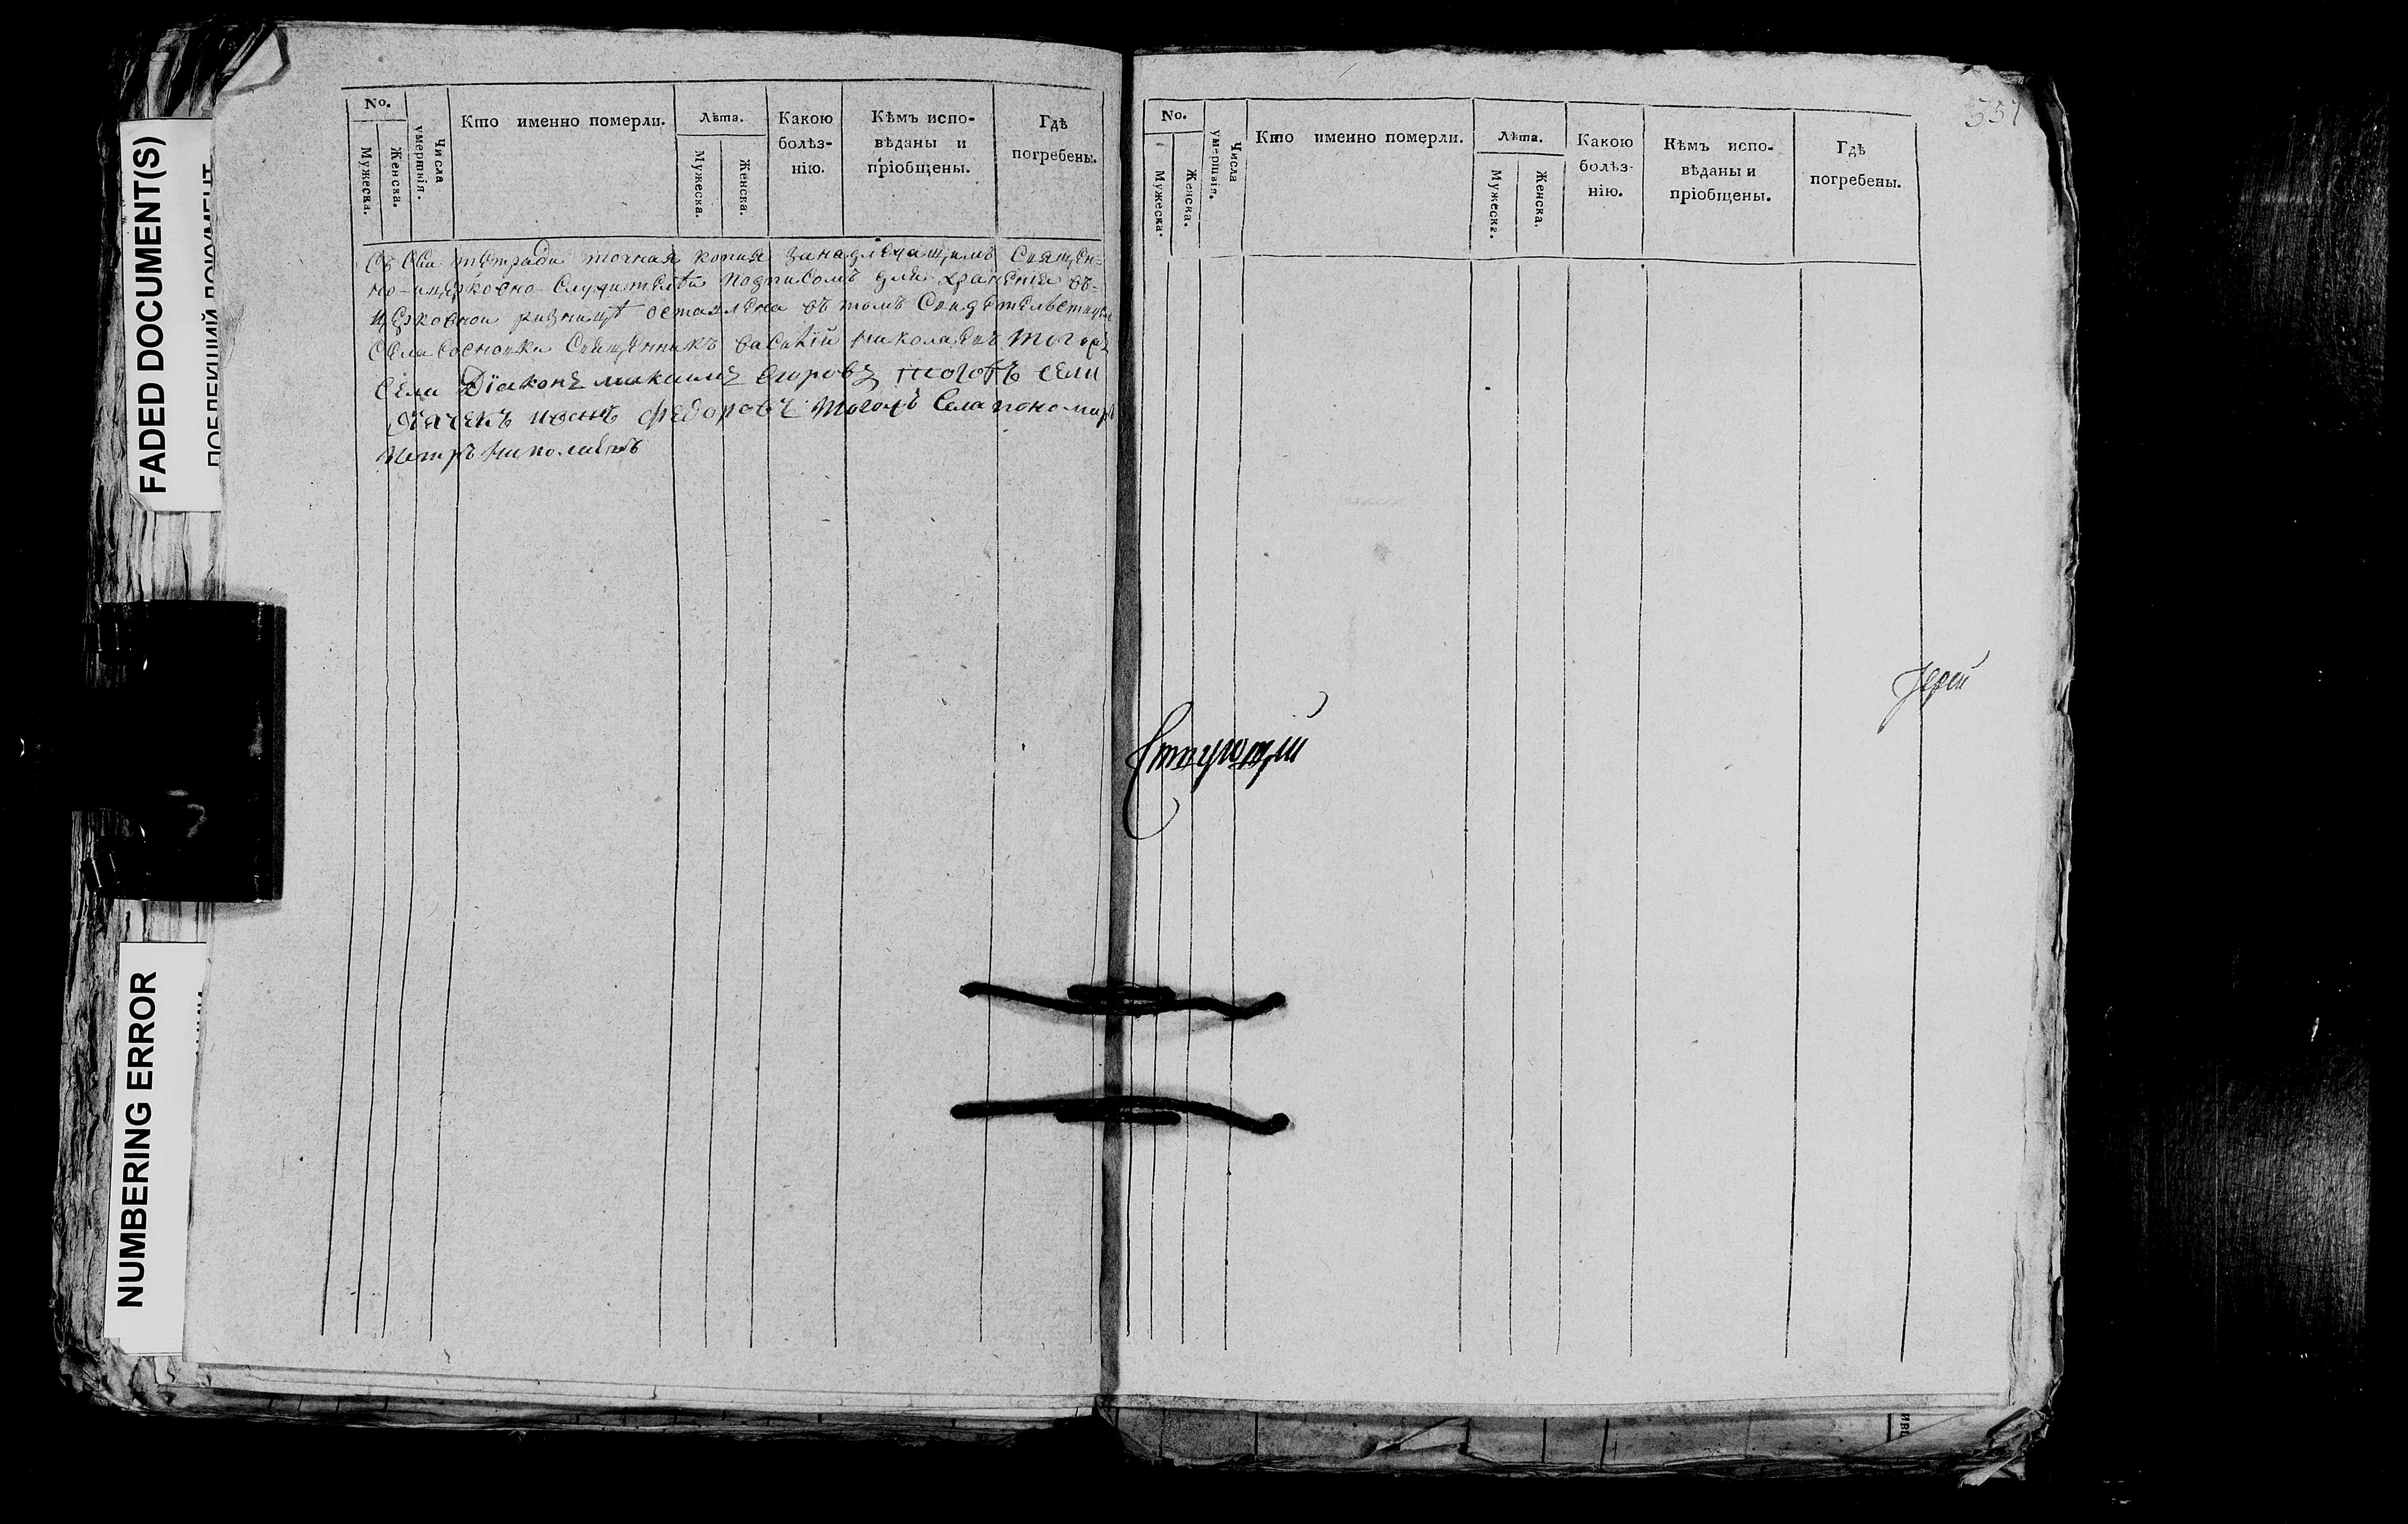 FADED DOCUMENT(S)
NUMBERING ERROR
No.
Мужеска.
Женска.
Числа умершвія.
Кто именно померли.
Лѣта.
Мужеска.
Женска.
Какою
болѣз-
нію.
Кѣмъ испо-
вѣданы и
пріобщены.
Гдѣ
погребены.
Съ сеи тетради точная копия занадлежащимъ Священ=
но-и церковно-служителеи подписомъ для хранения въ=
церковнои ризницѣ оставлена въ томъ
Села Сосновки Священникъ василій николаевъ тогожъ
Села Діаконъ максимъ Егоровъ тогожъ села
Дячекъ иванъ Федоровъ тогожъ Села пономарь
Петръ Николаевъ
No.
Мужеска.
Женска.
Числа умершвія.
Кто именно померли.
Лѣта.
Мужеска.
Женска.
Какою
болѣз-
нію.
Кѣмъ испо-
вѣданы и
пріобщены.
Гдѣ
погребены.
351
Іерей